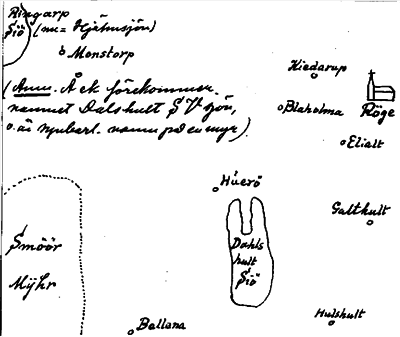 Ringarp
Siö (nu = Hjälmsjön)
Monstorp
(Anm. Å ek förekommer
namnet Dalshult S V sjön,
o. är uppbarl. namn på en myr)
Kiedarup
Blaholma
Röge
Elialt
Húerö
Galthult
Smöör
Mÿhr
Dahls
hult
Siö
Ballana
Hulshult